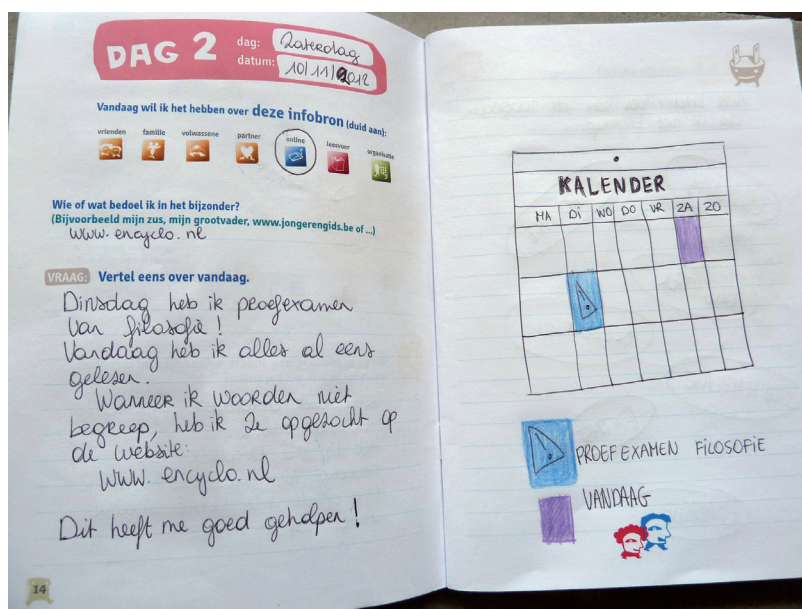 DAG 2
dag: Zaterdag
datum: 10/11/2012
Vandaag wil ik het hebben over deze infobron (duid aan):
vrienden familie volwassene partner online leesvoer organisatie
Wie of wat bedoel ik in het bijzonder?
(Bijvoorbeeld mijn zus, mijn grootvader, www.jongerengids.be of ...)
www.encyclo.nl
VRAAG: Vertel eens over vandaag.
Dinsdag heb ik proefexamen
van filosofie!
Vandaag heb ik alles al eens
gelezen.
Wanneer ik woorden niet
begreep, heb ik ze opgezocht op
de website:
www.encyclo.nl
Dit heeft me goed geholpen!
14
KALENDER
MA DI WO DO VR ZA ZO
PROEFEXAMEN FILOSOFIE
VANDAAG